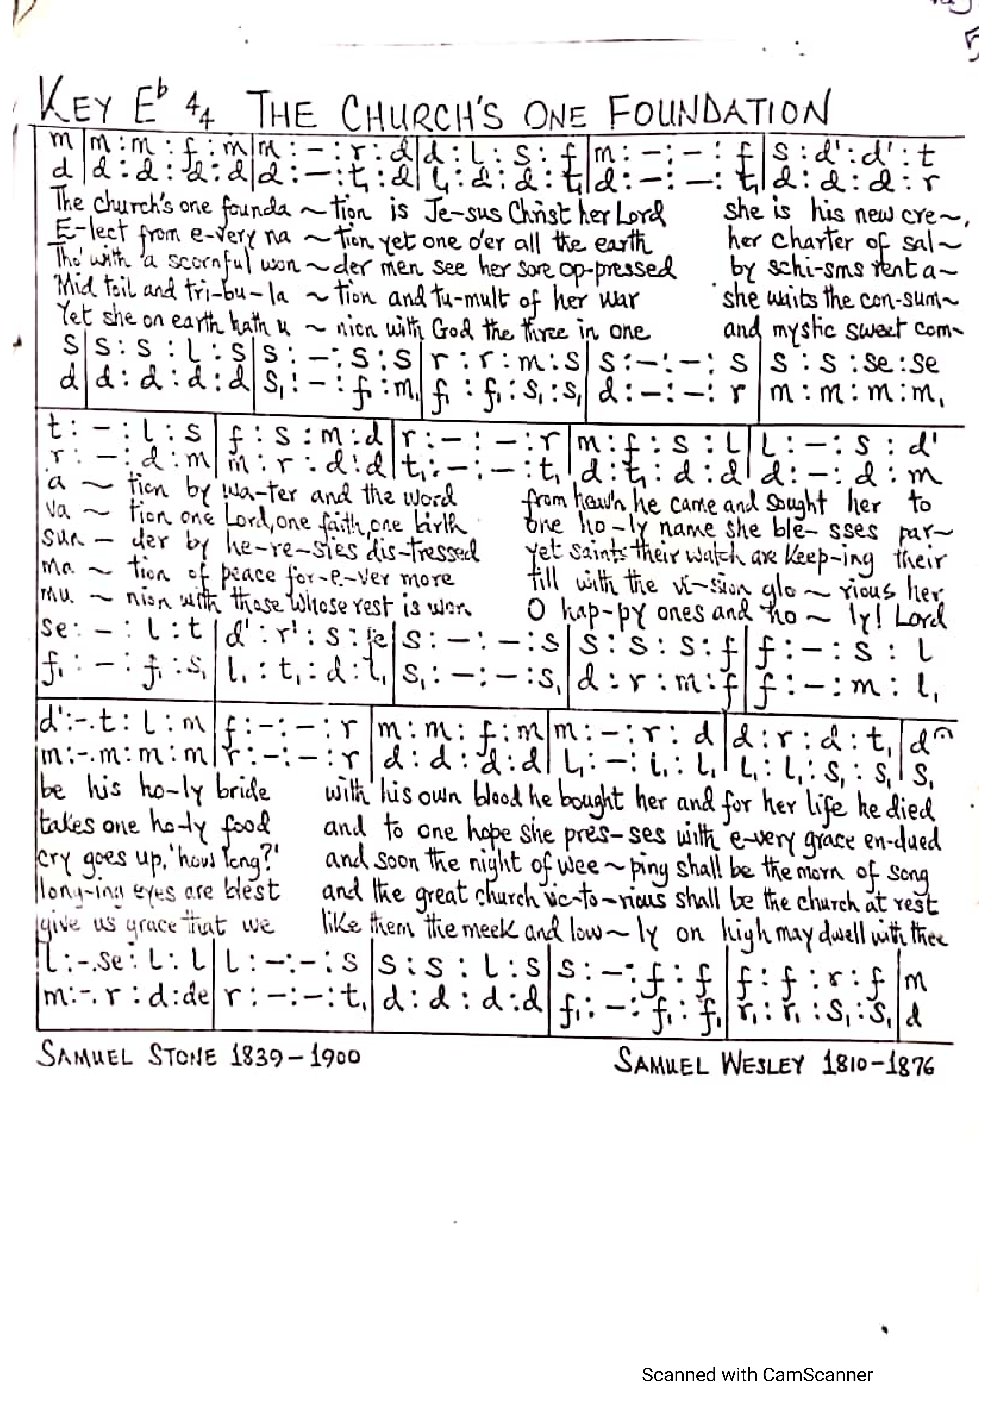 KEY Eb 4/4 THE CHURCH'S ONE FOUNDATION
m | m : m : f : m | m : – : r : d | d : l : s : f | m : – : – : f | s : d' : d' : t
d | d : d : d : d | d : – : t, : d | l, : d : d : t, | d : – : – : t, | d : d : d : r
The church's one founda ~ tion is Je-sus Christ her Lord she is his new cre~,
E-lect from e-very na ~ tion yet one o'er all the earth her charter of sal~
Tho' with a scornful won ~ der men see her sore op-pressed by schi-sms rent a~
Mid toil and tri-bu-la ~ tion and tu-mult of her war she waits the con-sum~
Yet she on earth hath u ~ nion with God the three in one and mystic sweet com~
s | s : s : l : s | s : – : s : s | r : r : m : s | s : – : – : s | s : s : se : se
d | d : d : d : d | s, : – : f, : m, | f, : f, : s, : s, | d : – : – : r | m : m : m : m,
t : – : l : s | f : s : m : d | r : – : – : r | m : f : s : l | l : – : s : d'
r : – : d : m | m : r : d : d | t, : – : – : t, | d : t, : d : d | d : – : d : m
a ~ tion by wa-ter and the word from heav'n he came and sought her to
va ~ tion one Lord, one faith, one birth one ho-ly name she ble-sses par~
sun – der by he-re-sies dis-tressed yet saints their watch are keep-ing their
ma ~ tion of peace for-e-ver more till with the vi-sion glo ~ rious her
mu ~ nion with those whose rest is won O hap-py ones and ho ~ ly! Lord
se : – : l : t | d' : r' : s : fe | s : – : – : s | s : s : s : f | f : – : s : l
f, : – : f, : s, | l, : t, : d : l, | s, : – : – : s, | d : r : m : f | f : – : m : l,
d' : -. t : l : m | f : – : – : r | m : m : f : m | m : – : r : d | d : r : d : t, | d
m : -. m : m : m | r : – : – : r | d : d : d : d | l, : – : l, : l, | l, : l, : s, : s, | s,
be his ho-ly bride with his own blood he bought her and for her life he died
takes one ho-ly food and to one hope she pres-ses with e-very grace en-dued
cry goes up, 'how long?' and soon the night of wee ~ ping shall be the morn of song
long-ing eyes are blest and the great church vic-to-rious shall be the church at rest
give us grace that we like them the meek and low ~ ly on high may dwell with thee
l : -. se : l : l | l : – : – : s | s : s : l : s | s : – : f : f | f : f : r : f | m
m : -. r : d : de | r : – : – : t, | d : d : d : d | f, : – : f, : f, | r, : r, : s, : s, | d
SAMUEL STONE 1839–1900 SAMUEL WESLEY 1810–1876
Scanned with CamScanner